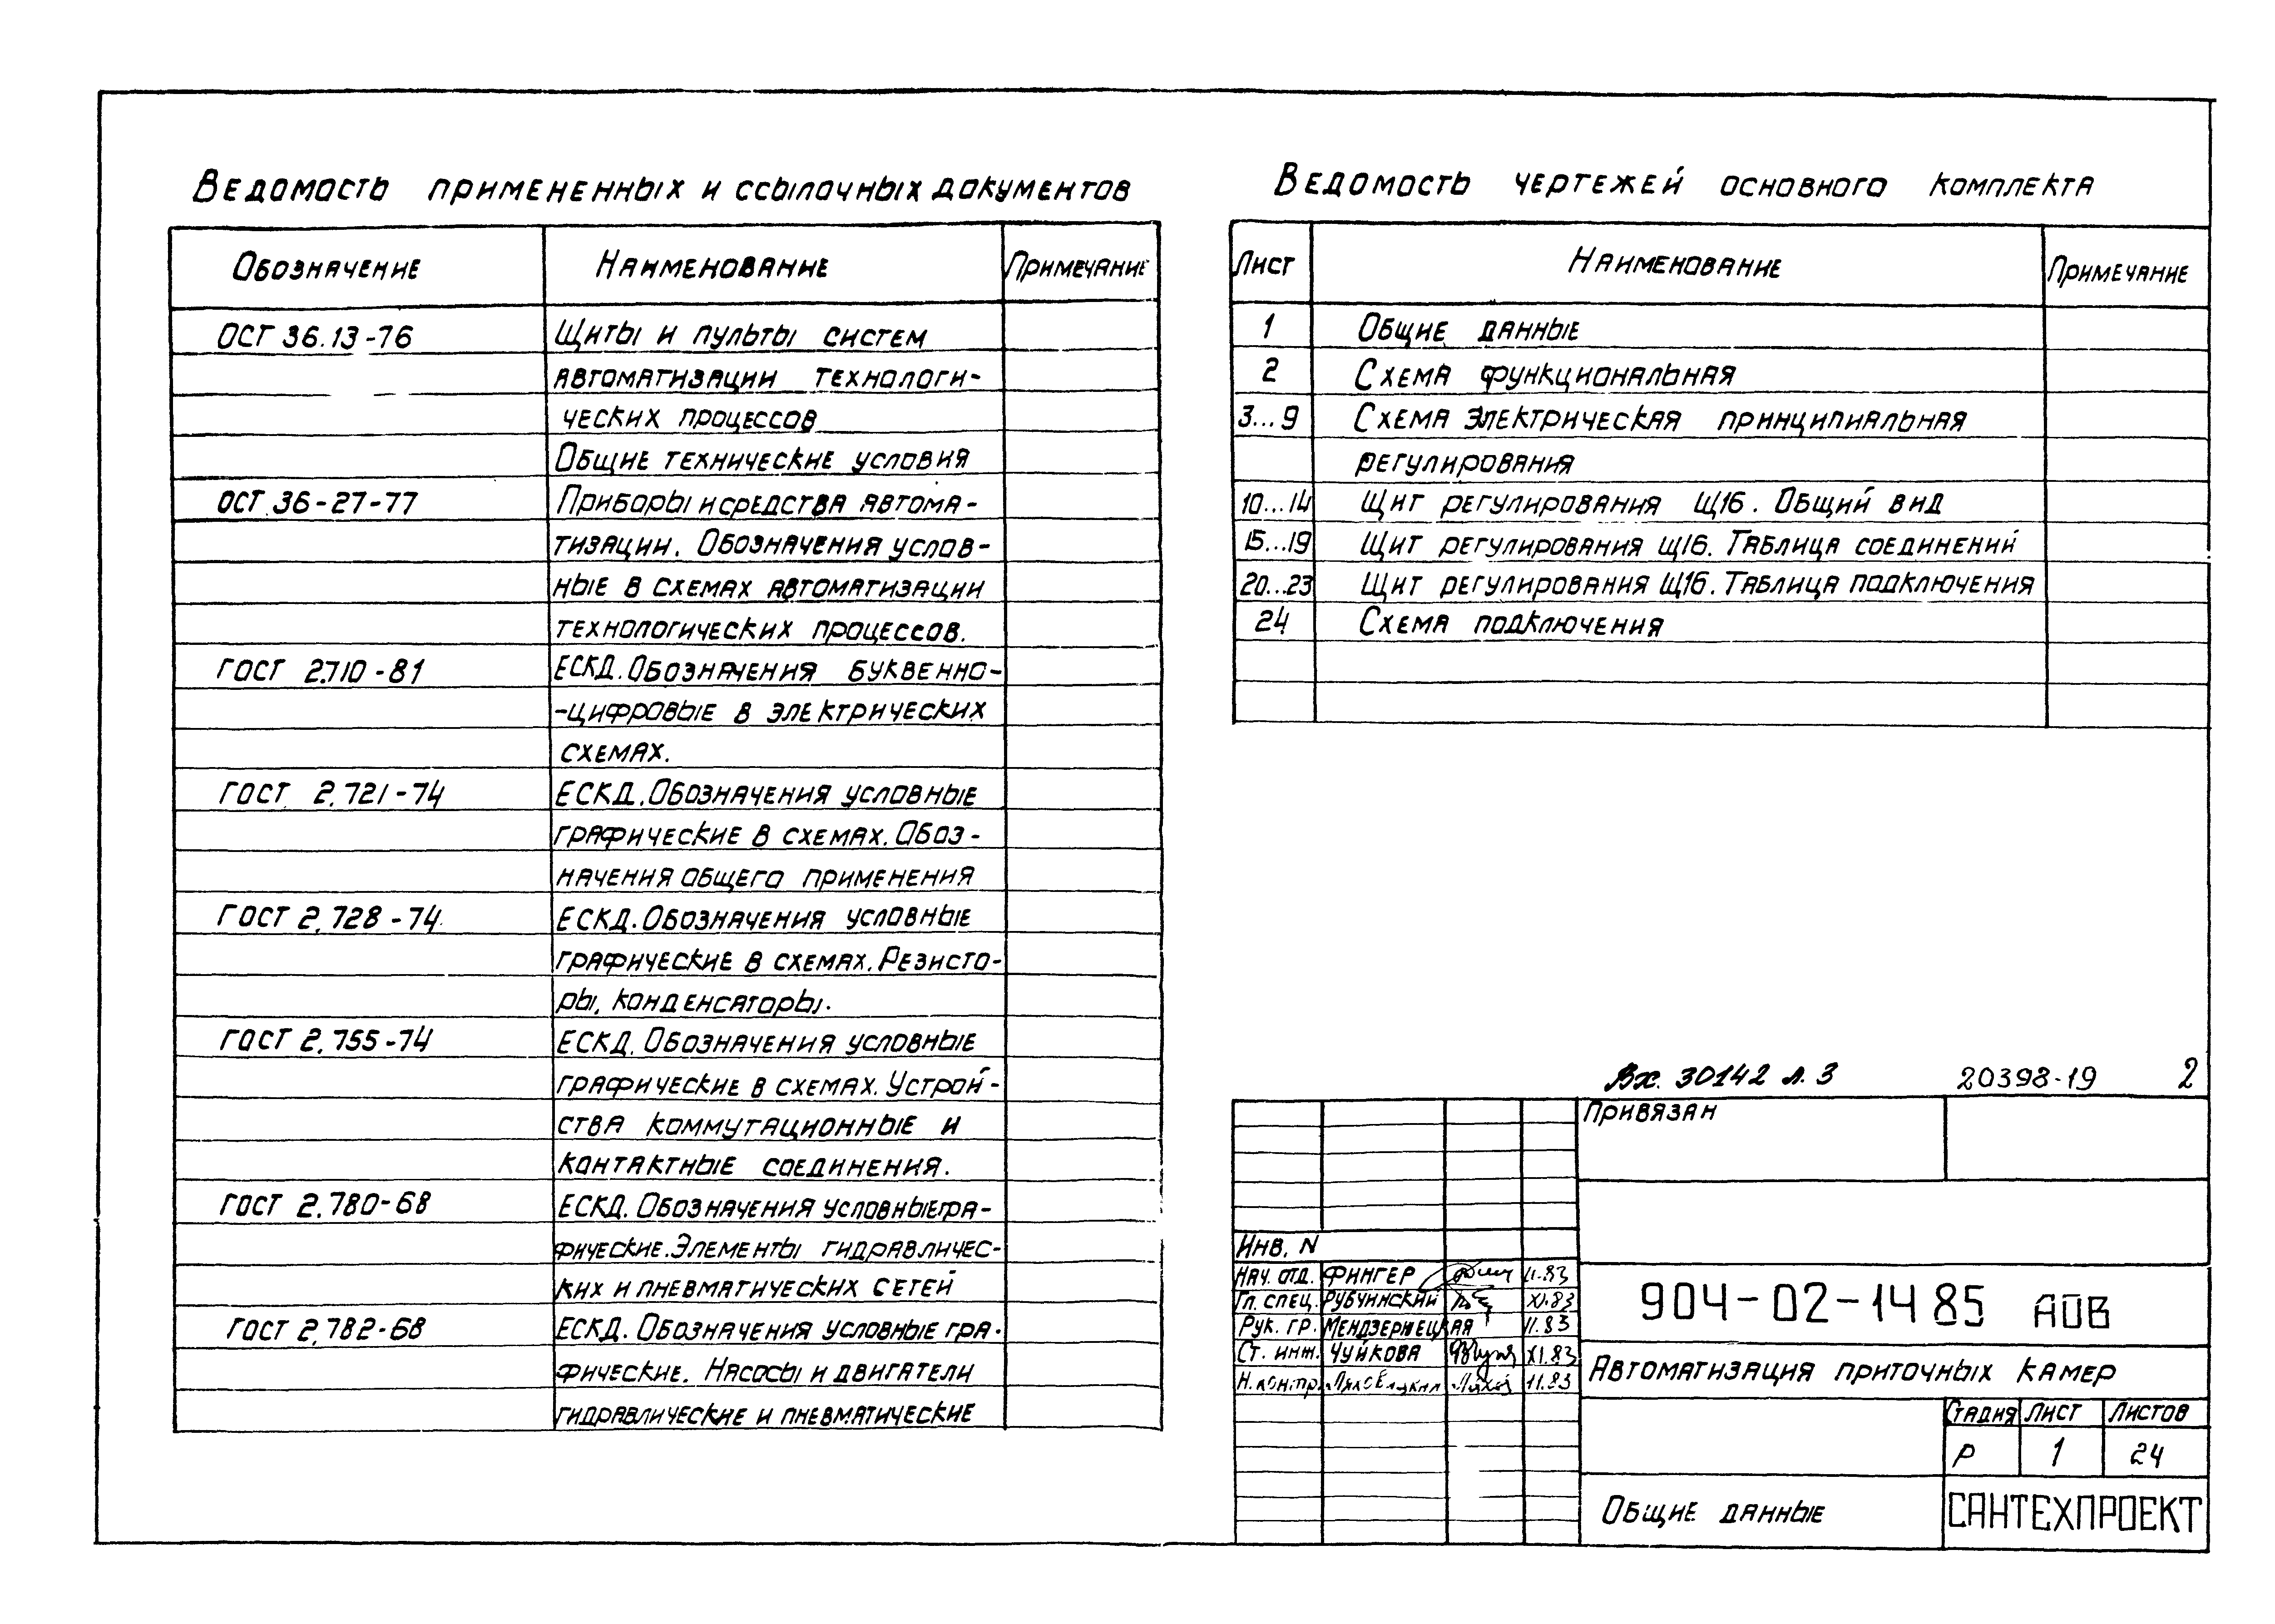 Ведомость примененных и ссылочных документов
Обозначение Наименование Примечание
ОСТ 36.13-76 Щиты и пульты систем
автоматизации технологи-
ческих процессов
Общие технические условия
ОСТ 36-27-77 Приборы и средства автома-
тизации. Обозначения услов-
ные в схемах автоматизации
технологических процессов.
ГОСТ 2.710-81 ЕСКД. Обозначения буквенно-
-цифровые в электрических
схемах.
ГОСТ 2.721-74 ЕСКД. Обозначения условные
графические в схемах. Обоз-
начения общего применения
ГОСТ 2.728-74 ЕСКД. Обозначения условные
графические в схемах. Резисто-
ры, конденсаторы.
ГОСТ 2.755-74 ЕСКД. Обозначения условные
графические в схемах. Устрой-
ства коммутационные и
контактные соединения.
ГОСТ 2.780-68 ЕСКД. Обозначения условные гра-
фические. Элементы гидравличес-
ких и пневматических сетей
ГОСТ 2.782-68 ЕСКД. Обозначения условные гра-
фические. Насосы и двигатели
гидравлические и пневматические
Ведомость чертежей основного комплекта
Лист Наименование Примечание
1 Общие данные
2 Схема функциональная
3...9 Схема электрическая принципиальная
регулирования
10...14 Щит регулирования Щ16. Общий вид
15...19 Щит регулирования Щ16. Таблица соединений
20...23 Щит регулирования Щ16. Таблица подключения
24 Схема подключения
Вх. 30142 л. 3 20398-19 2
Привязан
Инв. N
Нач. отд. Фингер 11.83
Гл. спец. Рубчинский XI.83
Рук. гр. Мендзержецкая 11.83
Ст. инж. Чуйкова XI.83
Н. контр. 11.83
904-02-14 85 АОВ
Автоматизация приточных камер
Стадия Лист Листов
Р 1 24
Общие данные
САНТЕХПРОЕКТ